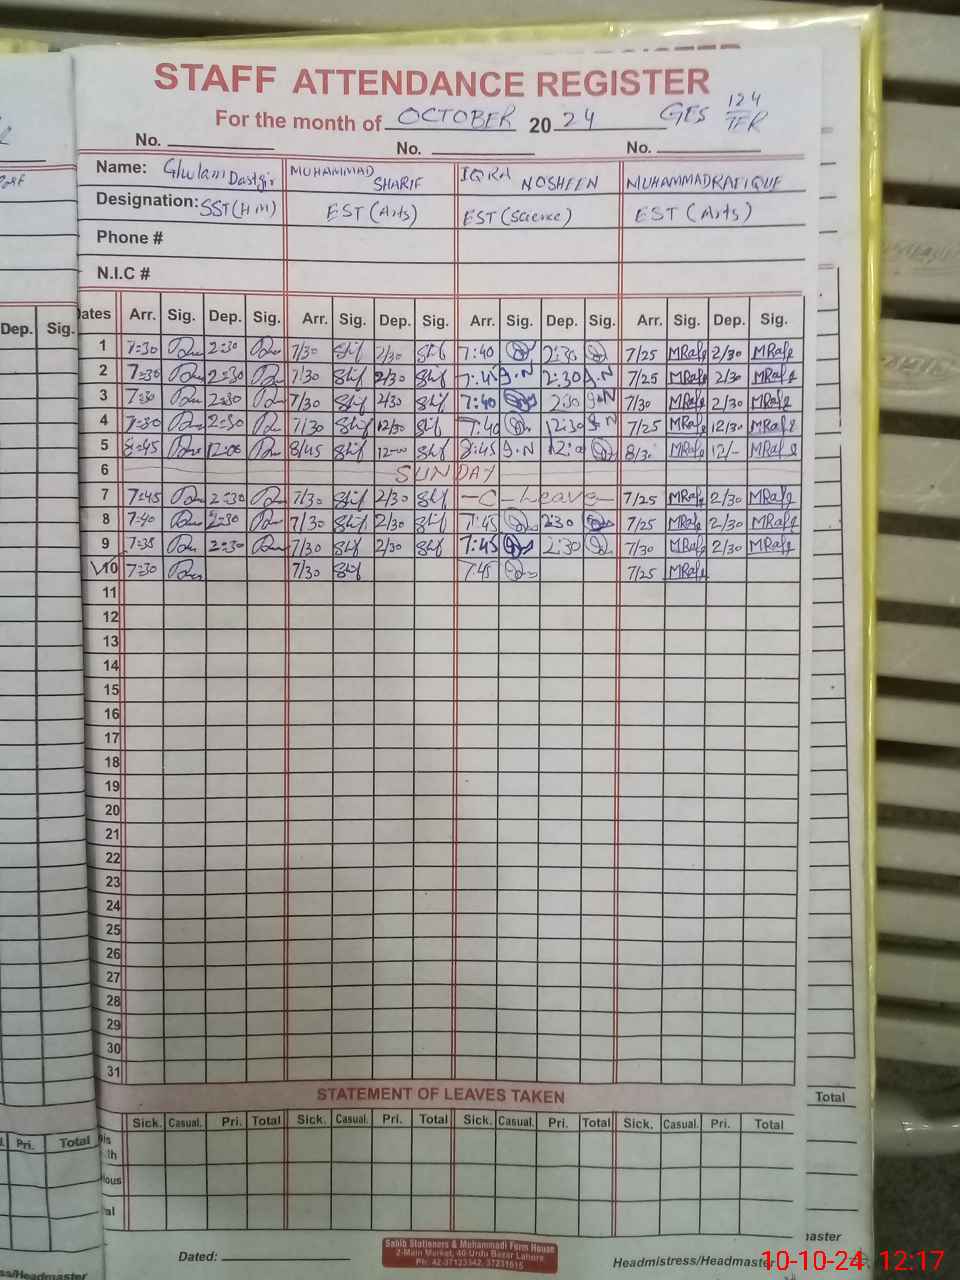 STAFF ATTENDANCE REGISTER
For the month of OCTOBER 2024 GES 124
No. No. No.
Name: Ghulam Dastgir MUHAMMAD SHARIF IQRA NOSHEEN MUHAMMAD RAFIQUE
Designation: SST(HM) EST (Arts) EST (Science) EST (Arts)
Phone #
N.I.C #
Dep. Sig. ates Arr. Sig. Dep. Sig. Arr. Sig. Dep. Sig. Arr. Sig. Dep. Sig. Arr. Sig. Dep. Sig.
1 7=30 2=30 7/30 Shif 2/30 Shif 7:40 2:30 7/25 MRafe 2/30 MRafe
2 7=30 2=30 7/30 Shif 2/30 Shif 7:45 I.N 2:30 I.N 7/25 MRafe 2/30 MRafe
3 7=30 2=30 7/30 Shif 2/30 Shif 7:40 2:30 I.N 7/30 MRafe 2/30 MRafe
4 7=30 2=30 7/30 Shif 12/30 Shif 7:40 12:30 I.N 7/25 MRafe 12/30 MRafe
5 8=45 12=00 8/45 Shif 12-00 Shif 8:45 I.N 12:0 8/3 MRafe 12/- MRafe
6 SUNDAY
7 7=45 2=30 7/30 Shif 2/30 Shif -C-Leave- 7/25 MRafe 2/30 MRafe
8 7=40 2=30 7/30 Shif 2/30 Shif 7:45 2:30 7/25 MRafe 2/30 MRafe
9 7=35 2=30 7/30 Shif 2/30 Shif 7:45 2:30 7/30 MRafe 2/30 MRafe
10 7=30 7/30 Shif 7:45 7/25 MRafe
11
12
13
14
15
16
17
18
19
20
21
22
23
24
25
26
27
28
29
30
31
STATEMENT OF LEAVES TAKEN
Total
Sick. Casual. Pri. Total Sick. Casual. Pri. Total Sick. Casual. Pri. Total Sick. Casual. Pri. Total
Pri. Total
Dated:
Sabib Stationers & Mohammadi Form House
2-Main Market, 40-Urdu Bazar Lahore
Ph: 42-37123342, 37231615
Headmistress/Headmaster
ss/Headmaster
master
10-10-24 12:17